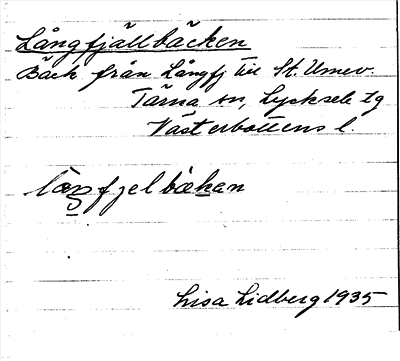 Långfjällbäcken
Bäck från Långfj till St. Umev.
Tärna sn, Lycksele tg
Västerbottens l.
fjelbækan
Lisa Lidberg 1935